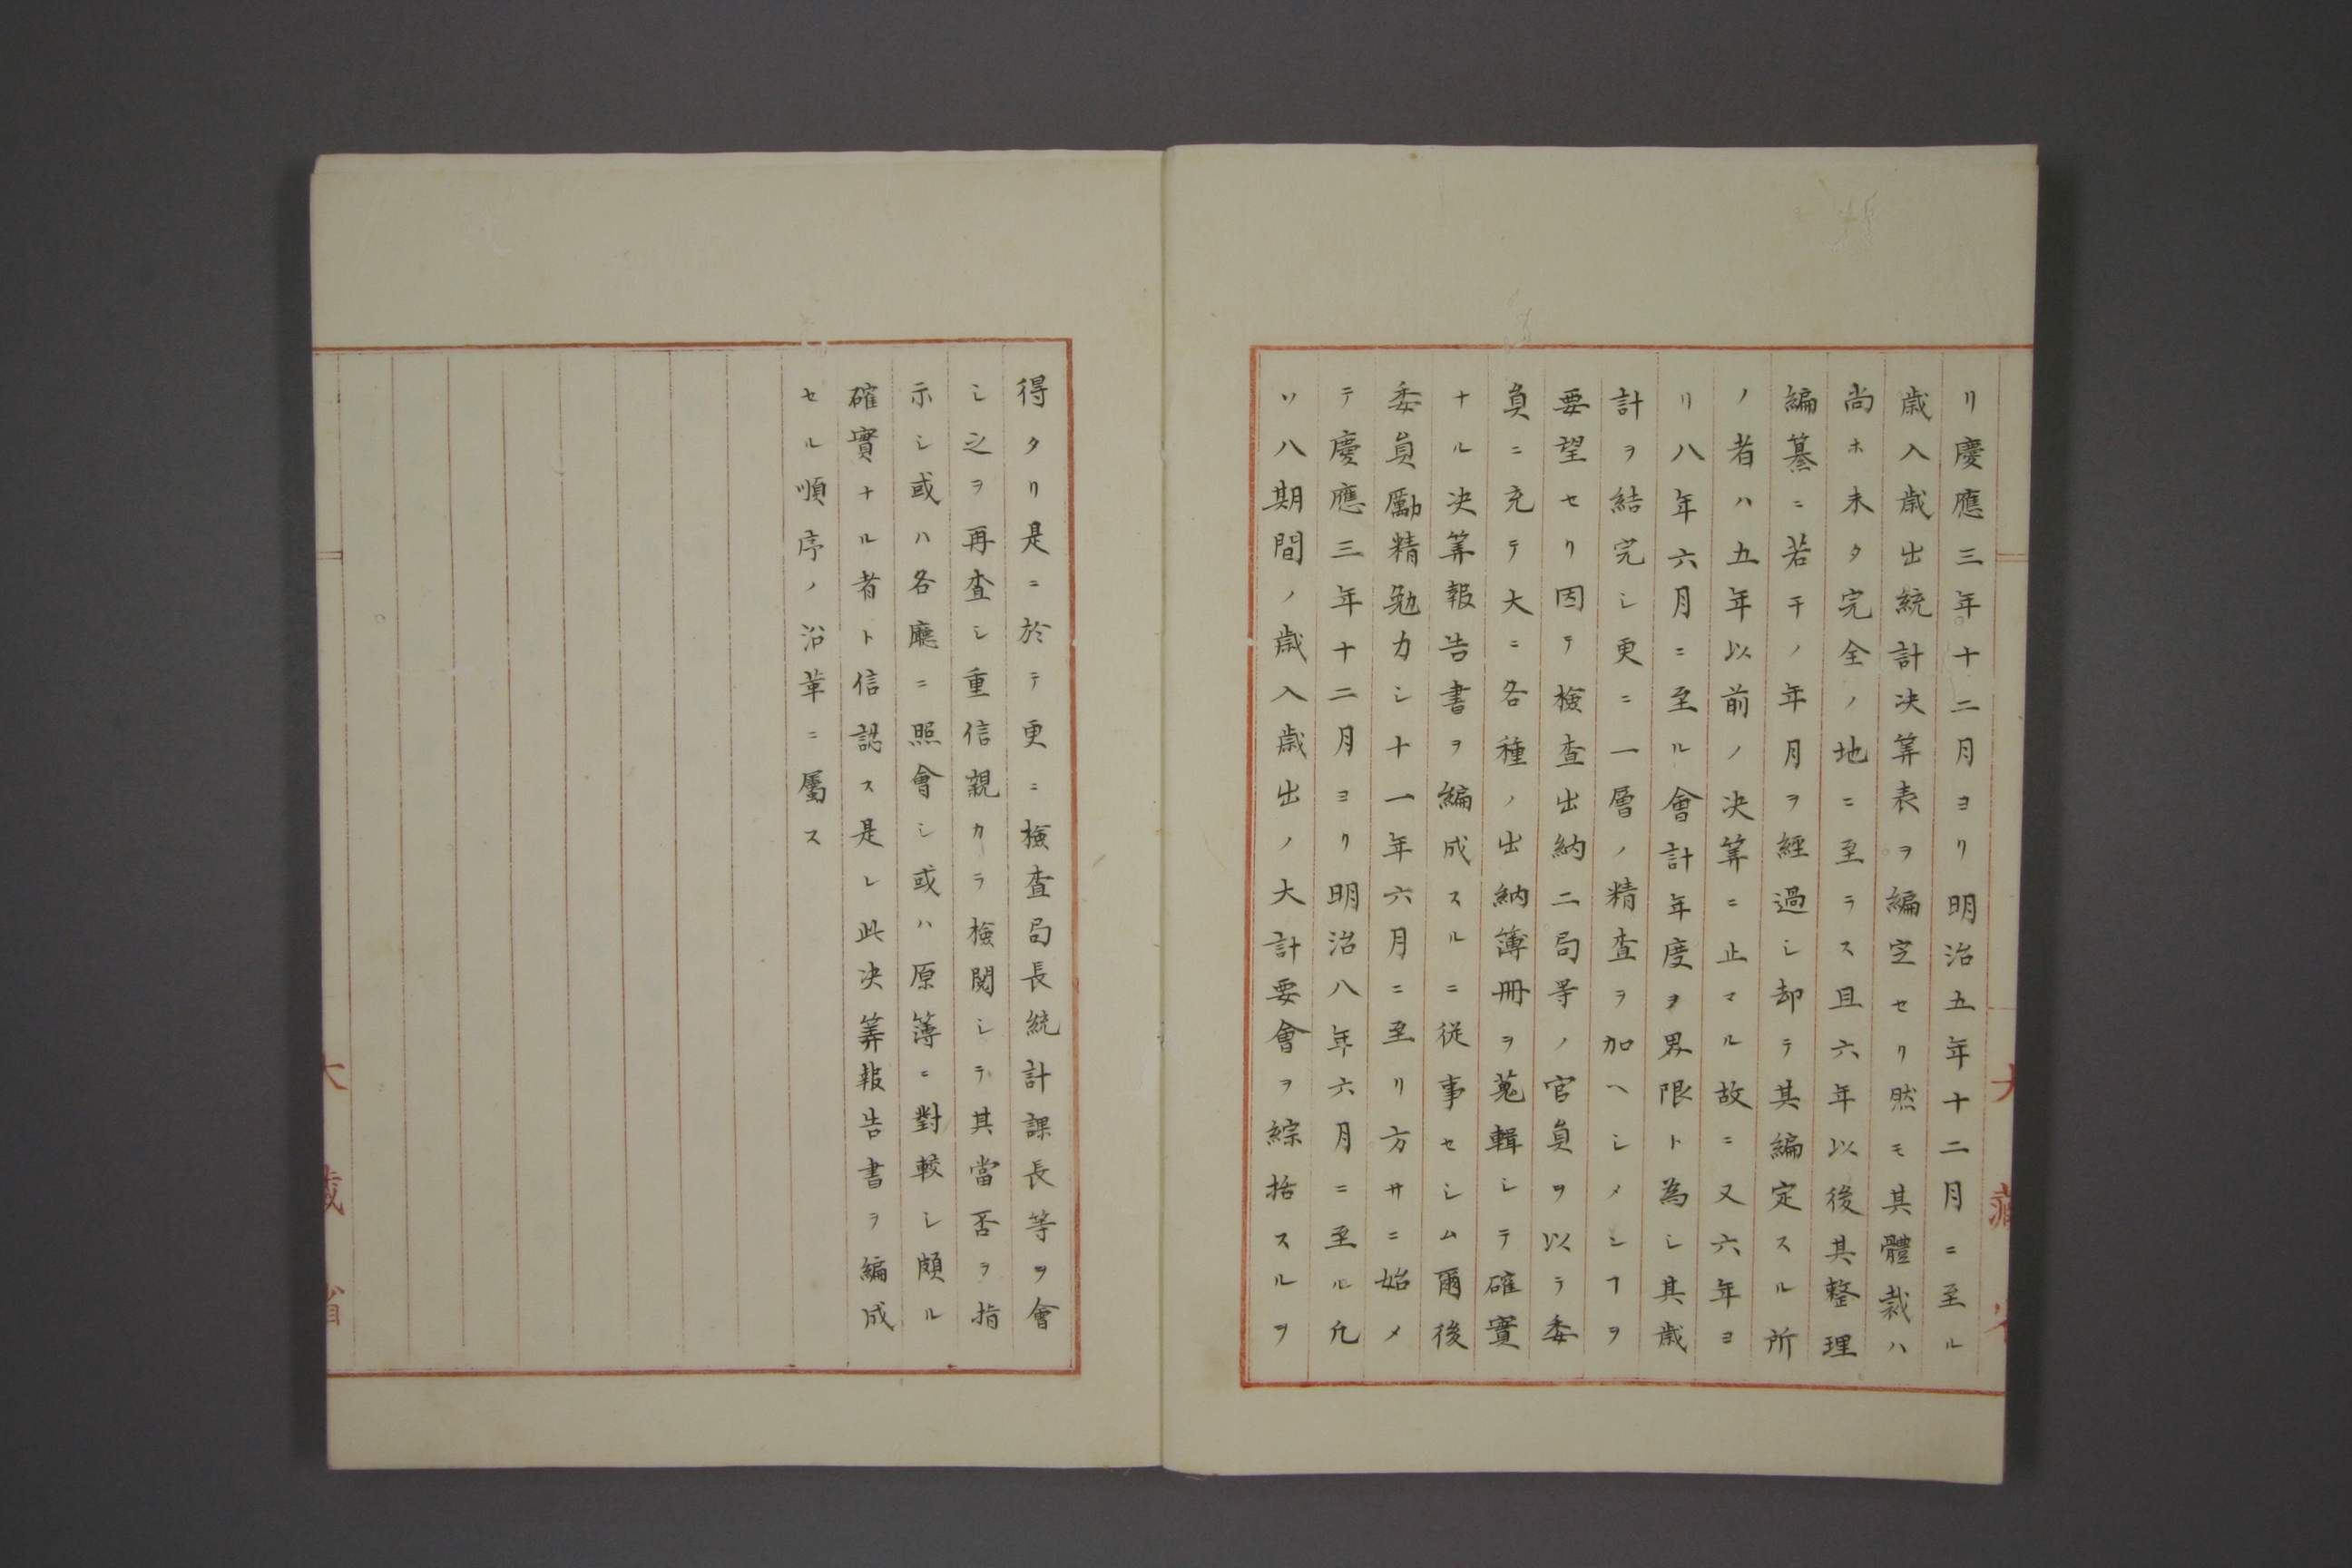 リ慶應三年十二月ヨリ明治五年十二月ニ至ル
歳入歳出統計决筭表ヲ編定セリ然モ其體裁ハ
尚ホ未タ完全ノ地ニ至ラス且六年以後其整理
編纂ニ若干ノ年月ヲ經過シ却テ其編定スル所
ノ者ハ五年以前ノ决筭ニ止マル故ニ又六年ヨ
リ八年六月ニ至ル會計年度ヲ界限ト為シ其歳
計ヲ結完シ更ニ一層ノ精査ヲ加ヘシメシヿヲ
要望セリ因テ檢查出納二局等ノ官員ヲ以テ委
員ニ充テ大ニ各種ノ出納簿冊ヲ蒐輯シテ確實
ナル决筭報告書ヲ編成スルニ従事セシム爾後
委員勵精勉力シ十一年六月ニ至リ方サニ始メ
テ慶應三年十二月ヨリ明治八年六月ニ至ル凢
ソ八期間ノ歳入歳出ノ大計要會ヲ綜括スルヲ
得タリ是ニ於テ更ニ檢查局長統計課長等ヲ會
シ之ヲ再查シ重信親カラ檢閲シテ其當否ヲ指
示シ或ハ各廳ニ照會シ或ハ原簿ニ對較シ頗ル
確實ナル者ト信認ス是レ此决筭報告書ヲ編成
セル順序ノ沿革ニ屬ス
大藏省